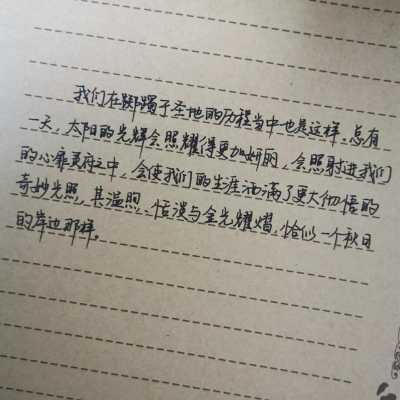 我们在踯躅于圣地的历程当中也是这样,总有
一天,太阳的光辉会照耀得更加妍丽,会照射进我们
的心扉灵府之中,会使我们的生涯洒满了更大彻悟的
奇妙光照,其温煦、恬淡与金光耀熠,恰似一个秋日
的岸边那样。